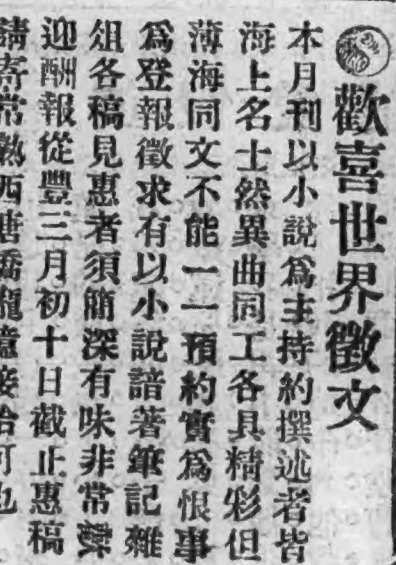 歡喜世界徵文
本月刊以小說爲主持約撰述者皆
海上名士然異曲同工各具精彩但
薄海同文不能一一預約實爲恨事
爲登報徵求有以小說諳著筆記雜
俎各稿見惠者須簡深有味非常歡
迎酬報從豐三月初十日截止惠稿
請寄常熟西唐橋龍接洽可也